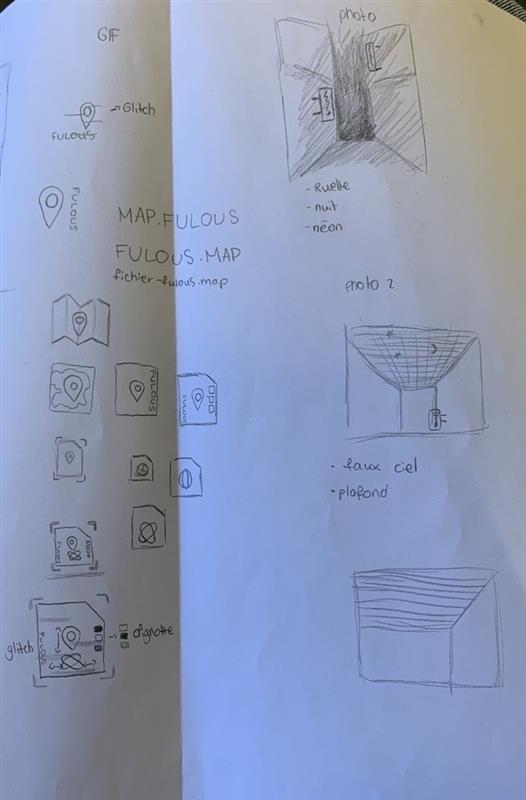 GIF
→ Glitch
FULOUS
FULOUS
MAP.FULOUS
FULOUS.MAP
fichier-fulous.map
FULOUS
FULOUS
glitch
FULOUS
→
photo
- Ruelle
- nuit
- néon
photo 2
- faux ciel
- plafond